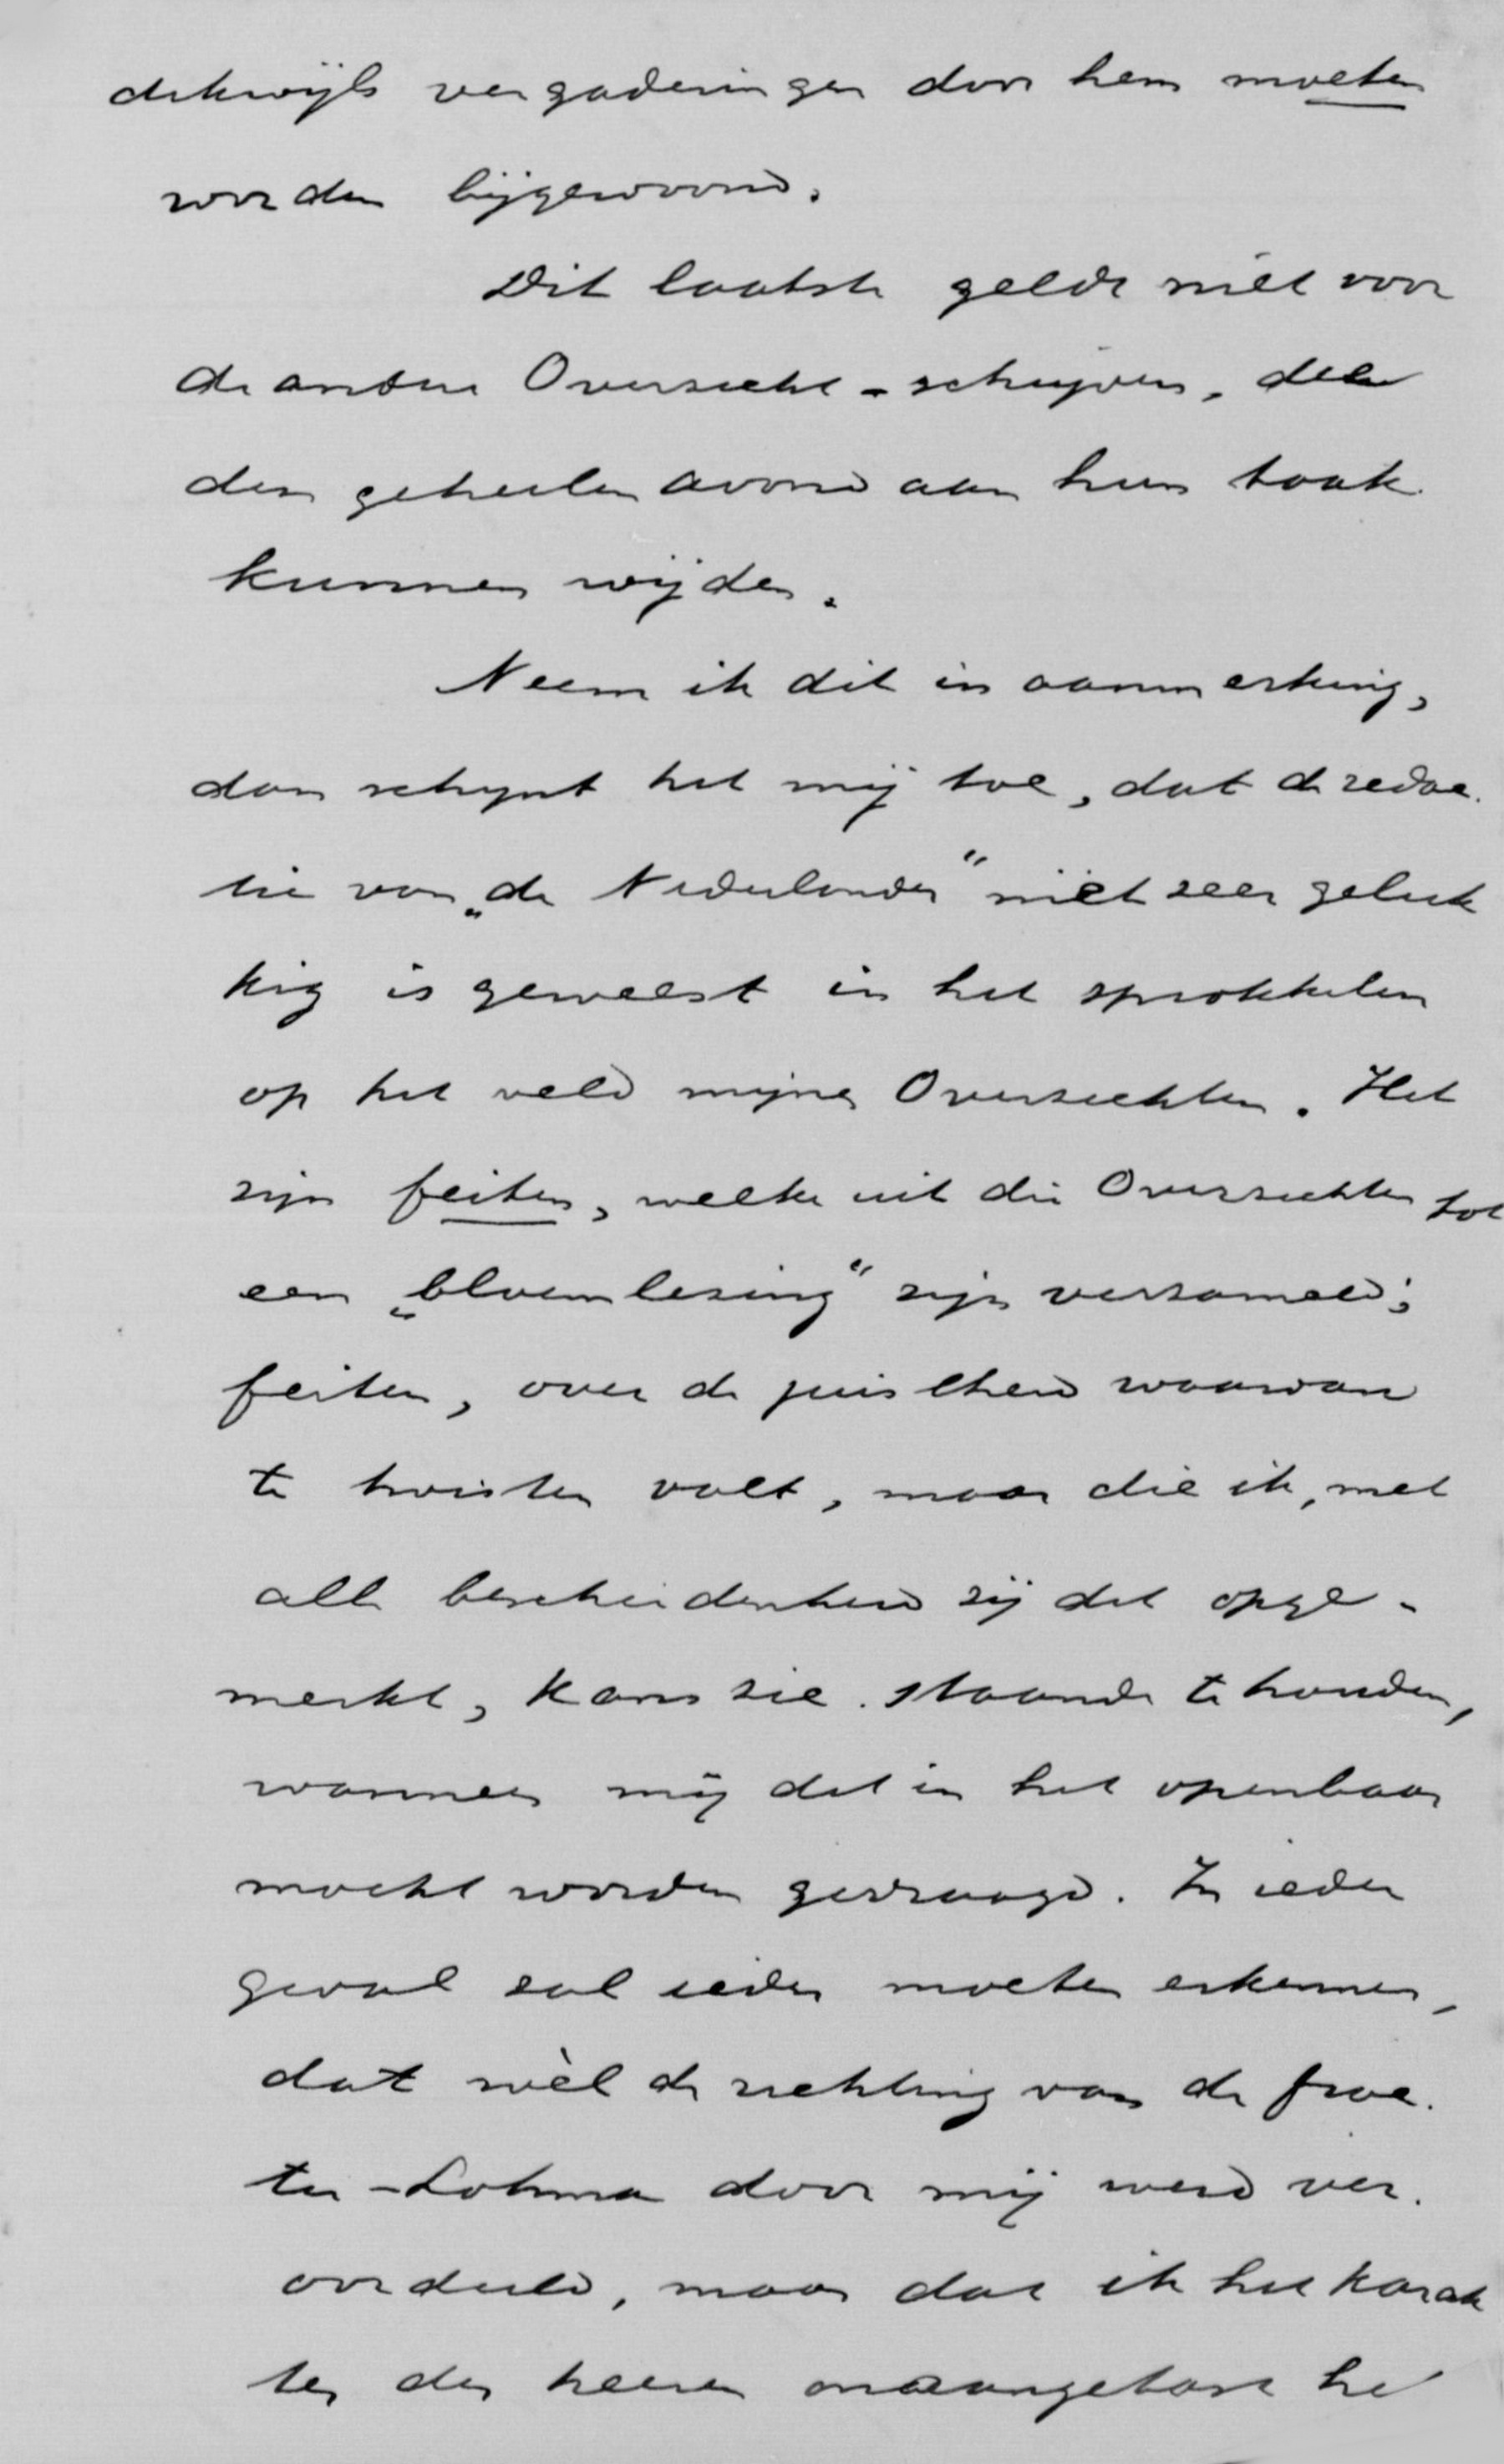 dikwijls vergaderingen door hem moeten
worden bijgewoond.
Dit laatste geldt niet voor
de andere Overzicht-schrijvers, die
den geheelen avond aan hun taak
kunnen wijden.
Neem ik dit in aanmerking,
dan schijnt het mij toe, dat de redac-
tie van „de Nederlander” niet zeer geluk
kig is geweest in het sprokkelen
op het veld mijner Overzichten. Het
zijn feiten, welke uit die Overzichten tot
een „bloemlezing” zijn verzameld;
feiten, over de juistheid waarvan
te twisten valt, maar die ik, met
alle bescheidenheid zij dit opge-
merkt, kans zie staande te houden,
wanneer mij dat in het openbaar
mocht worden gevraagd. In ieder
geval zal ieder moeten erkennen,
dat wèl de richting van de frac-
tie-Lohman door mij werd ver-
oordeeld, maar dat ik het karak
ter der heeren onaangetast he